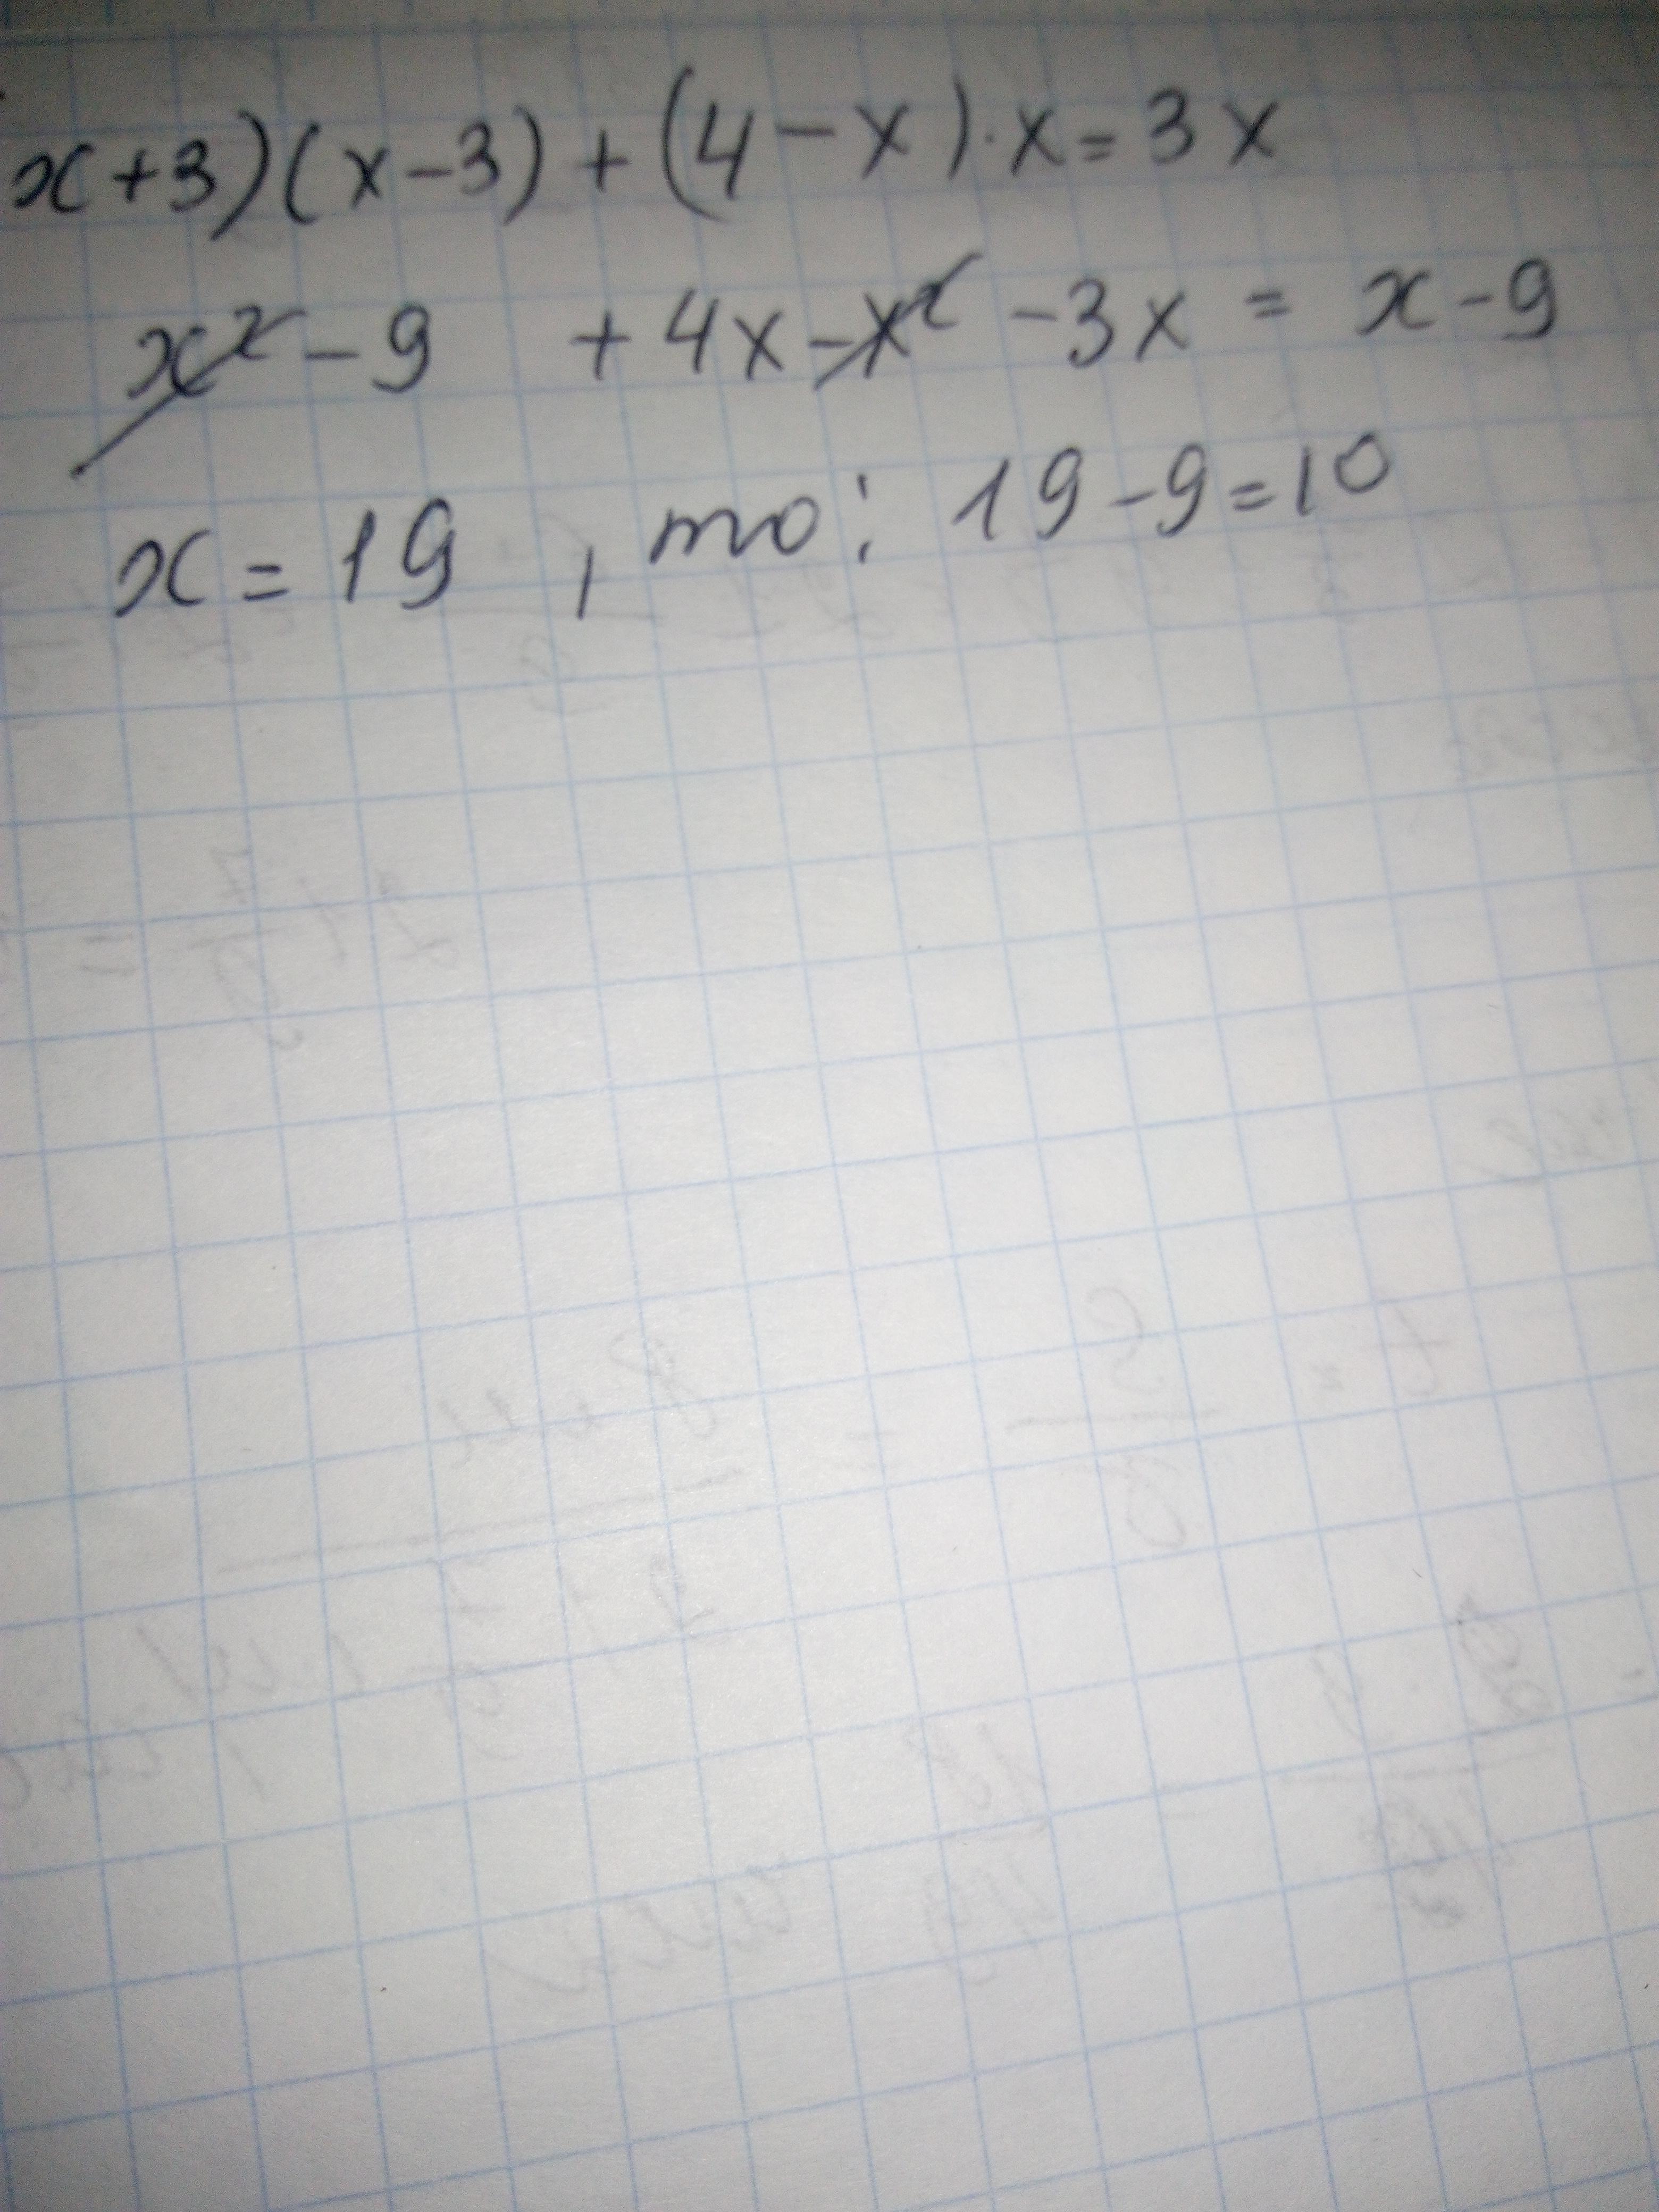 x+3)(x-3)+(4-x)·x=3x
x²-9 +4x-x²-3x = x-9
x=19, то: 19-9=10